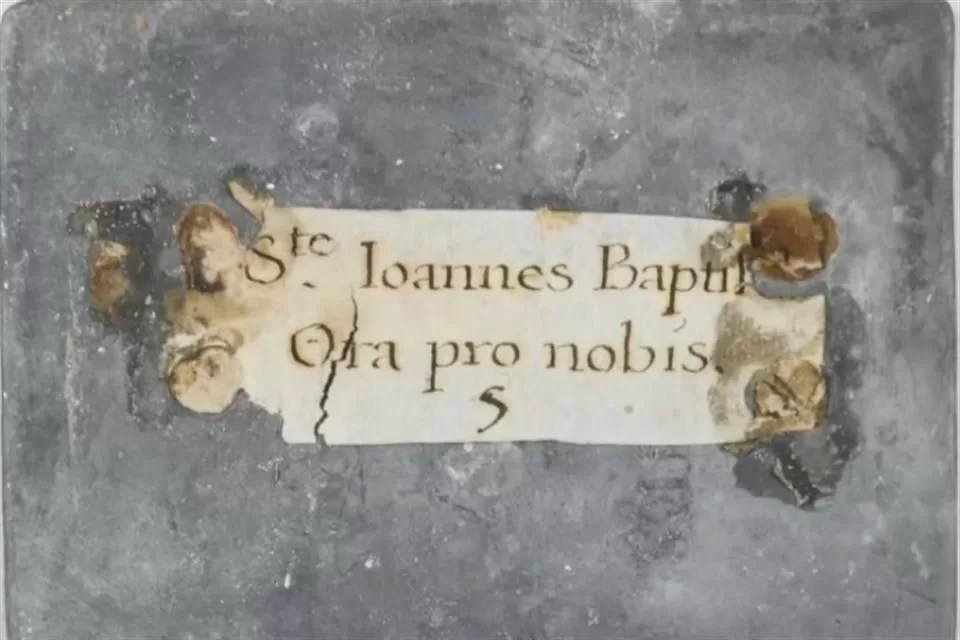 Ste Ioannes Baptis
Ora pro nobis.
5